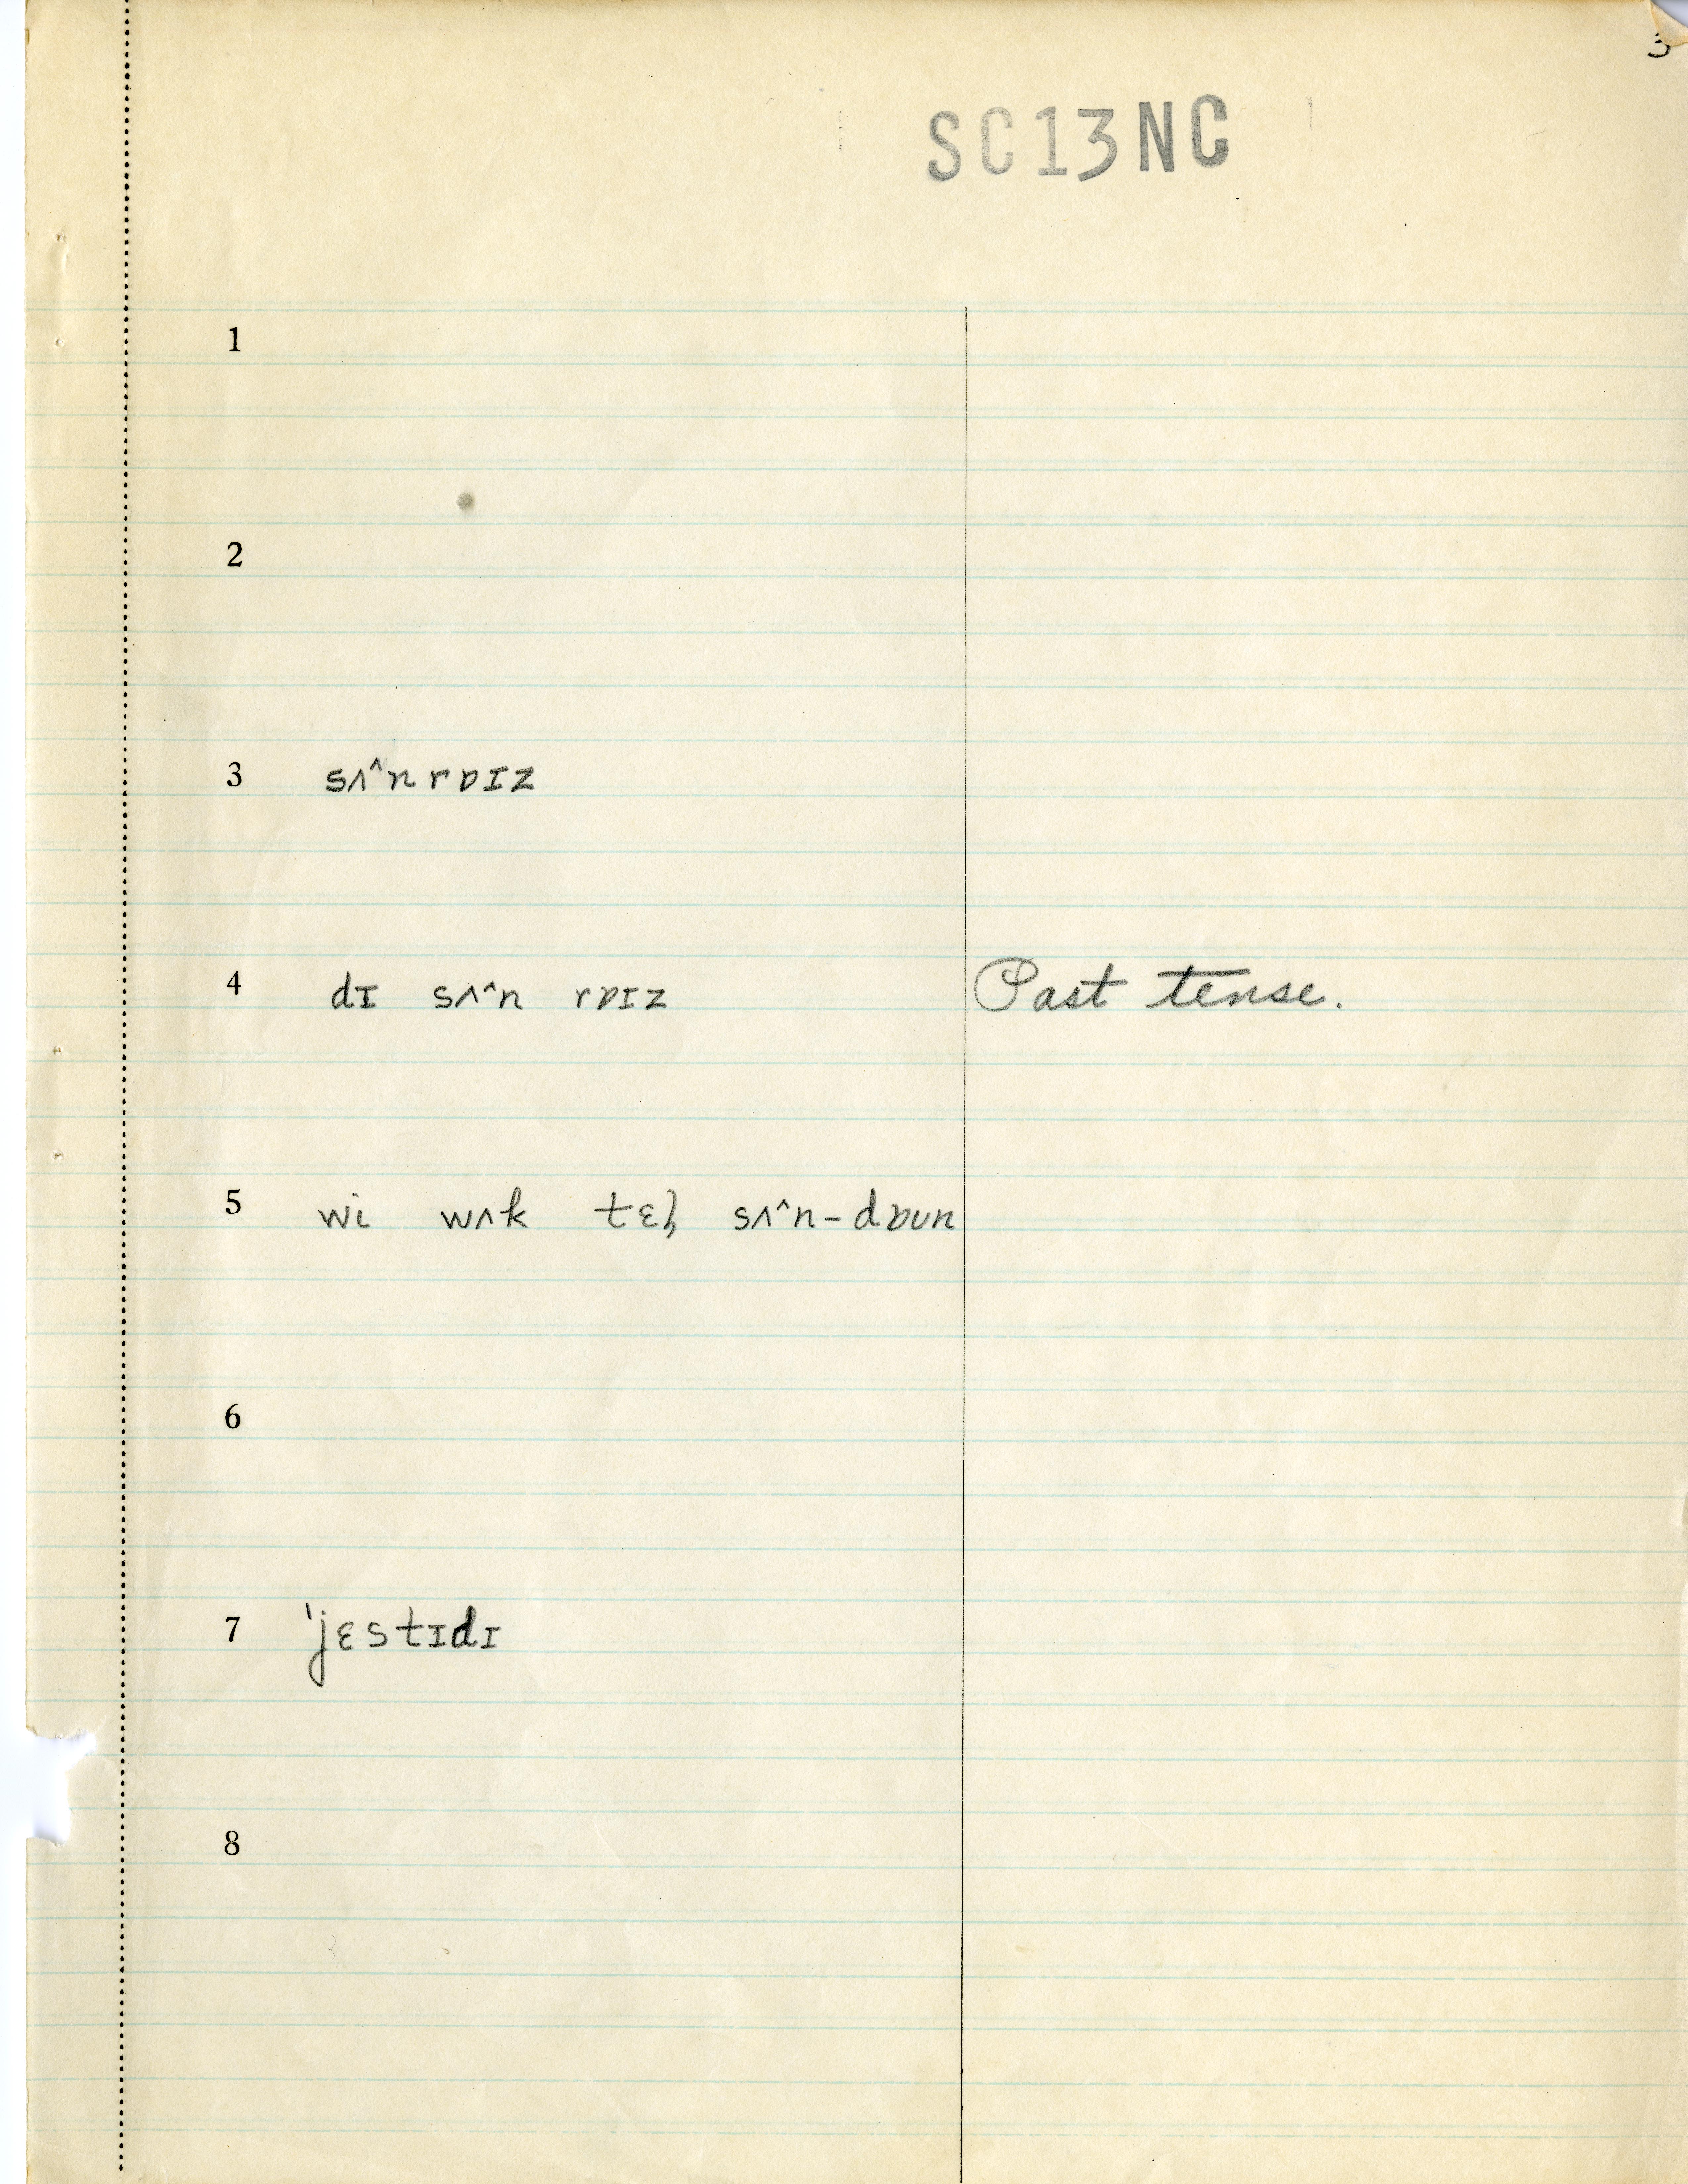 3
SC13NC
1
2
3 sʌ^n rɒɪz
4 dɪ sʌ^n rɒɪz Past tense.
5 wi wʌk tɛl̩ sʌ^n-dɒʊn
6
7 ˈjɛstɪdɪ
8